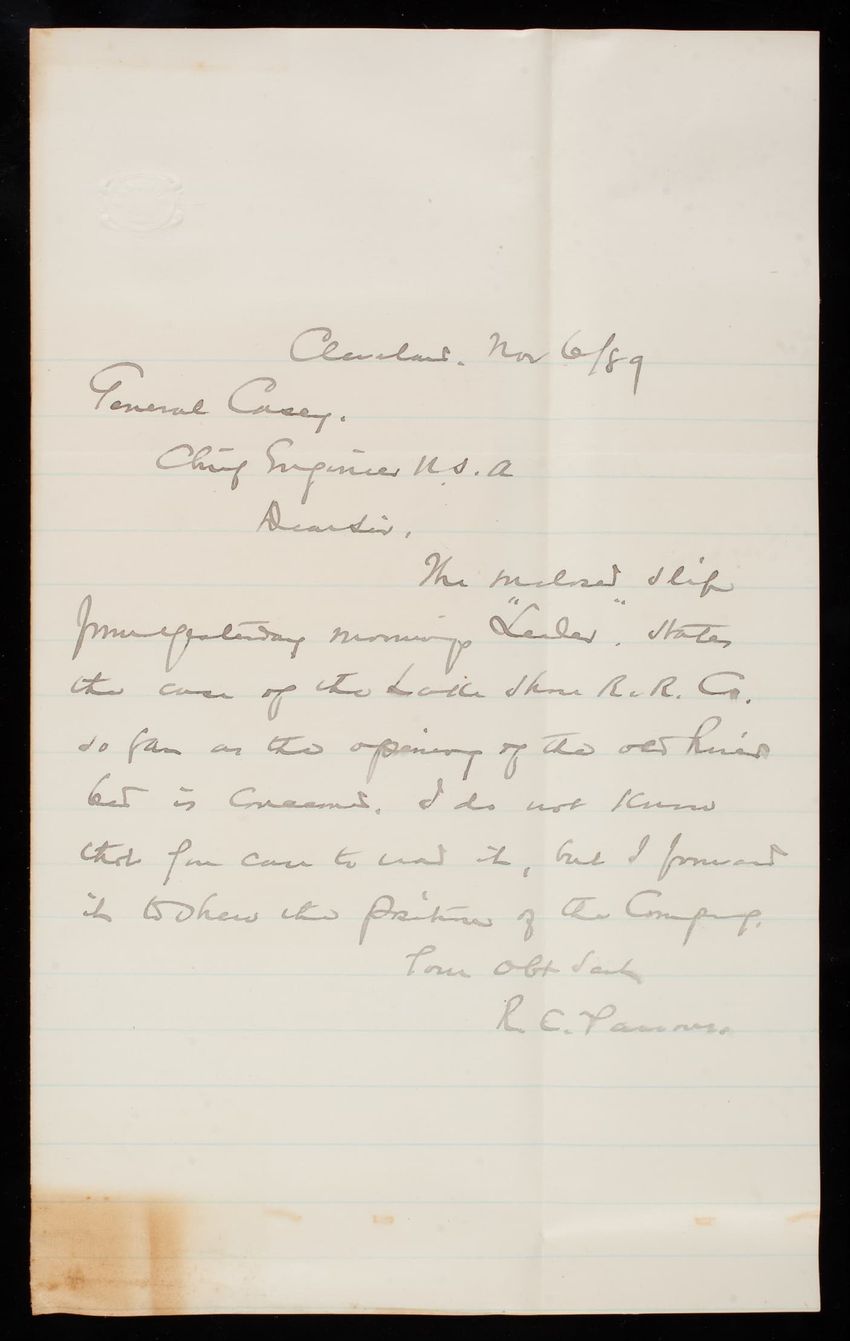 Cleveland. Nov 6/89
General Casey.
Chief Engineer U.S.A
Dear Sir,
The enclosed slip
from yesterday mornings "Leader". States
the case of the Lake Shore R.R. Co.
so far as the opening of the old River
bed is concerned. I do not know
that you care to read it, but I forward
it to shew the position of the Company.
Your Obt Servt
R. C. Parsons.